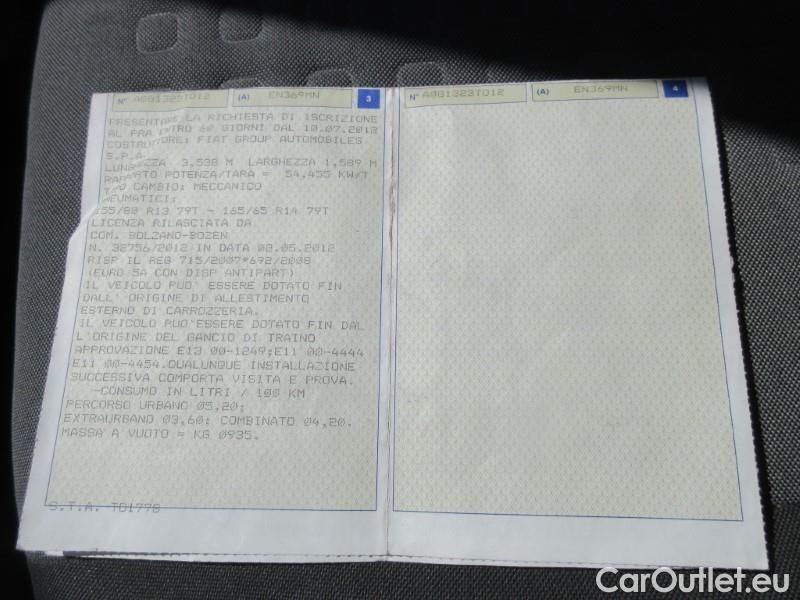 N° A0813251012 (A) EN369MN 3
PRESENTARE LA RICHIESTA DI ISCRIZIONE
AL PRA ENTRO 60 GIORNI DAL 10.07.2012
COSTRUTTORE: FIAT GROUP AUTOMOBILES
S.P.A.
LUNGHEZZA 3,538 M LARGHEZZA 1,589 M
RAPPORTO POTENZA/TARA = 54,455 KW/T
TIPO CAMBIO: MECCANICO
PNEUMATICI:
155/80 R13 79T - 165/65 R14 79T
LICENZA RILASCIATA DA
COM. BOLZANO-BOZEN
N. 32756/2012 IN DATA 02.05.2012
RISP IL REG 715/2007*692/2008
(EURO 5A CON DISP ANTIPART)
IL VEICOLO PUO' ESSERE DOTATO FIN
DALL' ORIGINE DI ALLESTIMENTO
ESTERNO DI CARROZZERIA.
IL VEICOLO PUO'ESSERE DOTATO FIN DAL
L'ORIGINE DEL GANCIO DI TRAINO
APPROVAZIONE E13 00-1249;E11 00-4444
E11 00-4454.QUALUNQUE INSTALLAZIONE
SUCCESSIVA COMPORTA VISITA E PROVA.
-CONSUMO IN LITRI / 100 KM
PERCORSO URBANO 05,20;
EXTRAURBANO 03,60; COMBINATO 04,20.
MASSA A VUOTO = KG 0935.
S.T.A. TO1778
N° (A) EN369MN 4
CarOutlet.eu